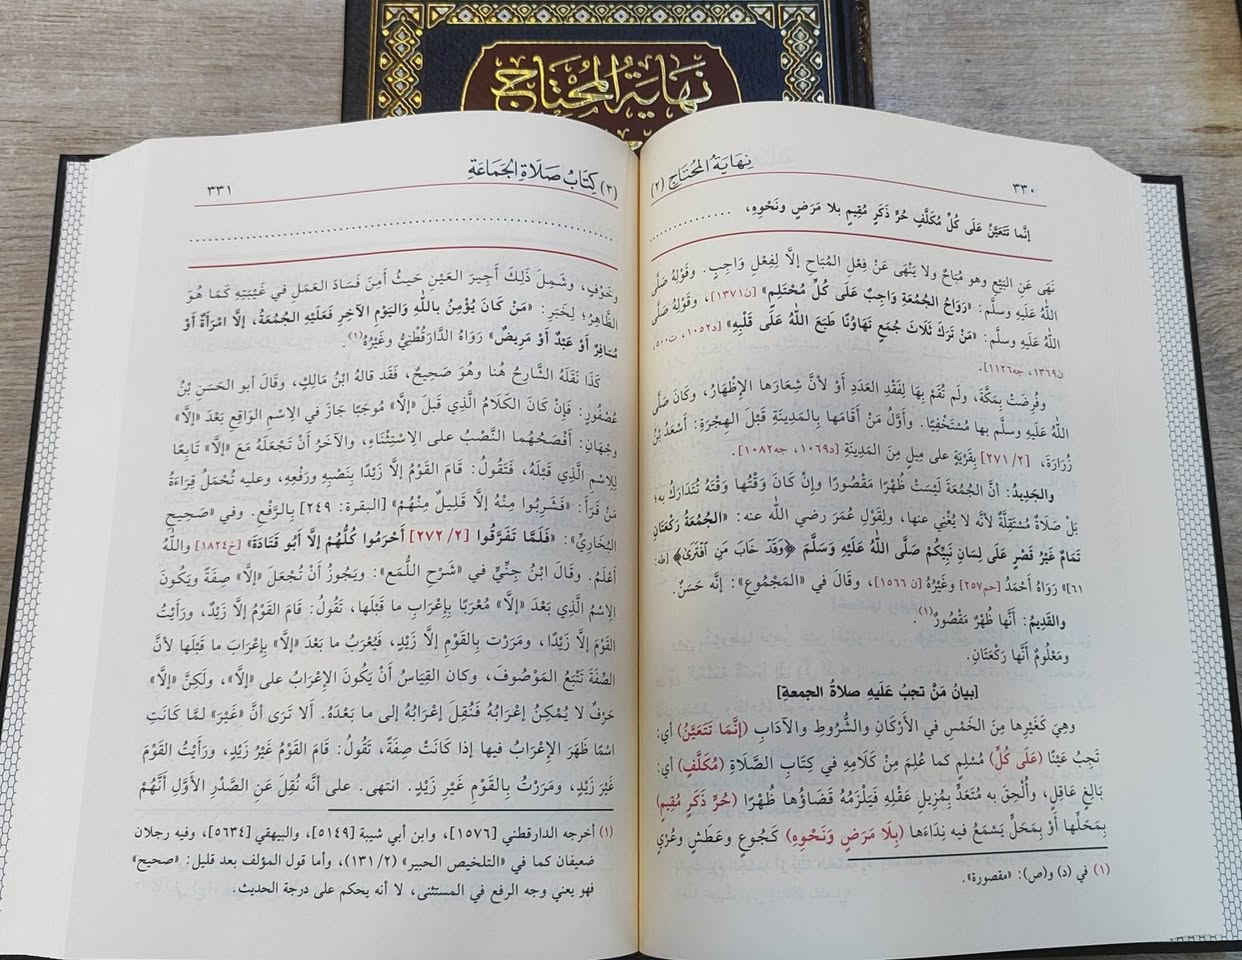 نِهَايَةُ المُحْتَاجِ
٣٣٠
نِهَايَةُ المُحْتَاجِ (٢)
إِنَّما تَتَعَيَّنُ عَلَى كُلِّ مُكَلَّفٍ حُرٍّ ذَكَرٍ مُقِيمٍ بِلا مَرَضٍ ونَحْوِهِ، ............
نَهَى عَن البَيْعِ وهو مُبَاحٌ ولا يَنْهَى عَنْ فِعْلِ المُبَاحِ إلَّا لِفِعْلِ وَاجِبٍ. وقَوْلِهِ صَلَّى
اللهُ عَلَيهِ وسلَّم: «رَوَاحُ الجُمُعَةِ وَاجِبٌ عَلَى كُلِّ مُحْتَلِمٍ» [ن١٣٧١]، وقَوْلِهِ صَلَّى
اللهُ عَلَيهِ وسلَّم: «مَنْ تَرَكَ ثَلَاثَ جُمَعٍ تَهَاوُنًا طَبَعَ اللهُ عَلَى قَلْبِهِ» [د١٠٥٢، ت٥٠٠،
ن١٣٦٩، جه١١٢٦].
وفُرِضَتْ بِمَكَّةَ، ولَم تُقَمْ بِهَا لِفَقْدِ العَدَدِ أَوْ لأنَّ شِعَارَها الإظْهَارُ، وكَانَ صَلَّى
اللهُ عَلَيهِ وسلَّم بها مُسْتَخْفِيًا. وأَوَّلُ مَنْ أَقَامَها بِالمَدِينَةِ قَبْلَ الهِجْرَةِ: أَسْعَدُ بْنُ
زُرَارَةَ، [٢/ ٢٧١] بِقَرْيَةٍ على مِيلٍ مِنَ المَدِينَةِ [د١٠٦٩، جه١٠٨٢].
والجَدِيدُ: أنَّ الجُمُعَةَ لَيْسَتْ ظُهْرًا مَقْصُورًا وإنْ كَانَ وَقْتُها وَقْتَهُ تُتَدَارَكُ به؛
بَلْ صَلَاةٌ مُسْتَقِلَّةٌ لأنَّه لا يُغْنِي عنها، ولِقَوْلِ عُمَرَ رضي الله عنه: «الجُمُعَةُ رَكْعَتَانِ
تَمَامٌ غَيْرُ قَصْرٍ عَلَى لِسَانِ نَبِيِّكُمْ صَلَّى اللهُ عَلَيْهِ وَسَلَّمَ ﴿وَقَدْ خَابَ مَنِ ٱفْتَرَىٰ﴾ [طه:
٦١]» رَوَاهُ أَحْمَدُ [حم٢٥٧] وغَيْرُهُ [ن١٥٦٦]، وقَالَ في «المَجْمُوعِ»: إنَّه حَسَنٌ.
والقَدِيمُ: أنَّها ظُهْرٌ مَقْصُورٌ(١).
ومَعْلُومٌ أنَّها رَكْعَتَانِ.
[بيانُ مَنْ تجبُ عَلَيهِ صلاةُ الجمعةِ]
وهِيَ كَغَيْرِها مِنَ الخَمْسِ في الأَرْكَانِ والشُّرُوطِ والآدَابِ (إنَّمَا تَتَعَيَّنُ) أي:
تَجِبُ عَيْنًا (عَلَى كُلِّ) مُسْلِمٍ كما عُلِمَ مِنْ كَلَامِهِ في كِتَابِ الصَّلَاةِ (مُكَلَّفٍ) أي:
بَالِغٍ عَاقِلٍ، وأُلْحِقَ به مُتَعَدٍّ بِمُزِيلِ عَقْلِهِ فَيَلْزَمُهُ قَضَاؤُها ظُهْرًا (حُرٍّ ذَكَرٍ مُقِيمٍ)
بِمَحَلِّها أَوْ بِمَحَلٍّ يَسْمَعُ فيه نِدَاءَها (بِلَا مَرَضٍ وَنَحْوِهِ) كَجُوعٍ وعَطَشٍ وعُرْيٍ
(١) في (د) و(ص): «مقصورة».
(٣) كِتَابُ صَلَاةِ الجَمَاعَةِ
٣٣١
وخَوْفٍ، وشَمِلَ ذَلِكَ أَجِيرَ العَيْنِ حَيثُ أَمِنَ فَسَادَ العَمَلِ في غَيْبَتِهِ كَمَا هُوَ
الظَّاهِرُ؛ لِخَبَرِ: «مَنْ كَانَ يُؤْمِنُ بِاللهِ وَاليَوْمِ الآخِرِ فَعَلَيْهِ الجُمُعَةُ، إلَّا امْرَأَةً أَوْ
مُسَافِرٌ أَوْ عَبْدٌ أَوْ مَرِيضٌ» رَوَاهُ الدَّارَقُطْنِيُّ وغَيْرُهُ(١).
كَذَا نَقَلَهُ الشَّارِحُ هُنا وهُوَ صَحِيحٌ، فَقَد قالهُ ابْنُ مَالِكٍ، وقَالَ أبو الحَسَنِ بْنُ
عُصْفُورٍ: فَإِنْ كَانَ الكَلَامُ الَّذِي قَبلَ «إلَّا» مُوجَبًا جَازَ في الاِسْمِ الوَاقِعِ بَعْدَ «إلَّا»
وجْهَانِ: أَفْصَحُهُما النَّصْبُ على الاِسْتِثْنَاءِ، والآخَرُ أَنْ تَجْعَلَهُ مَعَ «إلَّا» تَابِعًا
لِلِاسْمِ الَّذي قَبْلَهُ، فَتَقُولُ: قَامَ القَوْمُ إلَّا زَيْدًا بِنَصْبِهِ ورَفْعِهِ، وعليه تُحْمَلُ قِرَاءَةُ
مَنْ قَرَأَ: «فَشَرِبُوا مِنْهُ إلَّا قَلِيلٌ مِنْهُمْ» [البقرة: ٢٤٩] بِالرَّفْعِ. وفي «صَحِيحِ
البُخَارِيِّ»: «فَلَمَّا تَفَرَّقُوا [٢/ ٢٧٢] أَحْرَمُوا كُلُّهُمْ إلَّا أَبُو قَتَادَةَ» [خ١٨٢٤] واللهُ
أعْلَمُ. وقَالَ ابْنُ جِنِّيٍّ في «شَرْحِ اللُّمَعِ»: ويَجُوزُ أَنْ تُجْعَلَ «إلَّا» صِفَةً ويَكُونَ
الِاسْمُ الَّذي بَعْدَ «إلَّا» مُعْرَبًا بِإعْرَابِ ما قَبْلَها، تَقُولُ: قَامَ القَوْمُ إلَّا زَيْدٌ، ورَأَيْتُ
القَوْمَ إلَّا زَيْدًا، ومَرَرْت بِالقَوْمِ إلَّا زَيْدٍ، فَيُعْرَبُ ما بَعْدَ «إلَّا» بِإعْرَابِ ما قَبْلَها لأنَّ
الصِّفَةَ تَتْبَعُ المَوْصُوفَ، وكان القِيَاسُ أَنْ يَكُونَ الإعْرَابُ على «إلَّا»، ولَكِنَّ «إلَّا»
حَرْفٌ لا يُمْكِنُ إعْرَابُهُ فَنُقِلَ إعْرَابُهُ إلى ما بَعْدَهُ. ألا تَرَى أنَّ «غَيْرَ» لـمَّا كَانَتِ
اسْمًا ظَهَرَ الإعْرَابُ فيها إذا كَانَتْ صِفَةً، تَقُولُ: قَامَ القَوْمُ غَيْرُ زَيْدٍ، ورَأَيْتُ القَوْمَ
غَيْرَ زَيْدٍ، ومَرَرْتُ بِالقَوْمِ غَيْرِ زَيْدٍ. انتهى. على أنَّه نُقِلَ عَنِ الصَّدْرِ الأَوَّلِ أنَّهُمْ
(١) أخرجه الدارقطني [١٥٧٦]، وابن أبي شيبة [٥١٤٩]، والبيهقي [٥٦٣٤]، وفيه رجلان
ضعيفان كما في «التلخيص الحبير» (٢/ ١٣١)، وأما قول المؤلف بعد قليل: «صحيح»
فهو يعني وجه الرفع في المستثنى، لا أنه يحكم على درجة الحديث.